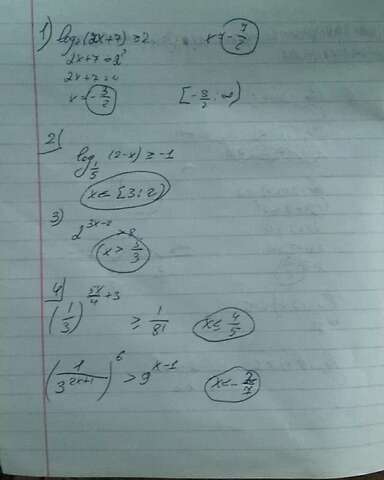 1) log₂(2x+7) ≥ 2 x = -7/2
2x+7 = 2²
2x+7 = 4
x = -3/2 [-3/2; ∞)
2)
log_{1/5} (2-x) ≥ -1
x ∈ [3; 2)
3)
2^{3x-2} > 8
x > 5/3
4)
(1/3)^{5x/4+3} ≥ 1/81 x ≤ 4/5
(1/3^{2x+1})^6 > 9^{x-1} x < -2/7